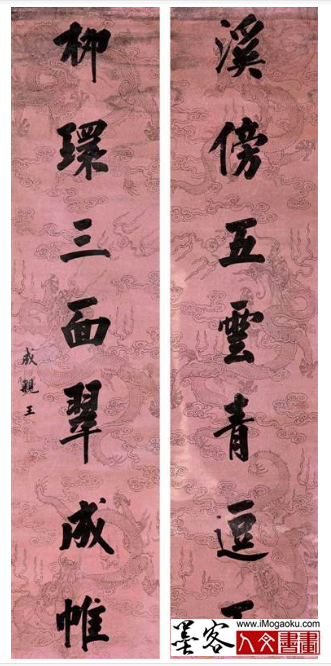 溪傍五雲青逗
柳環三面翠成帷
成親王
www.iMogaoku.com
墨客
人文書畫